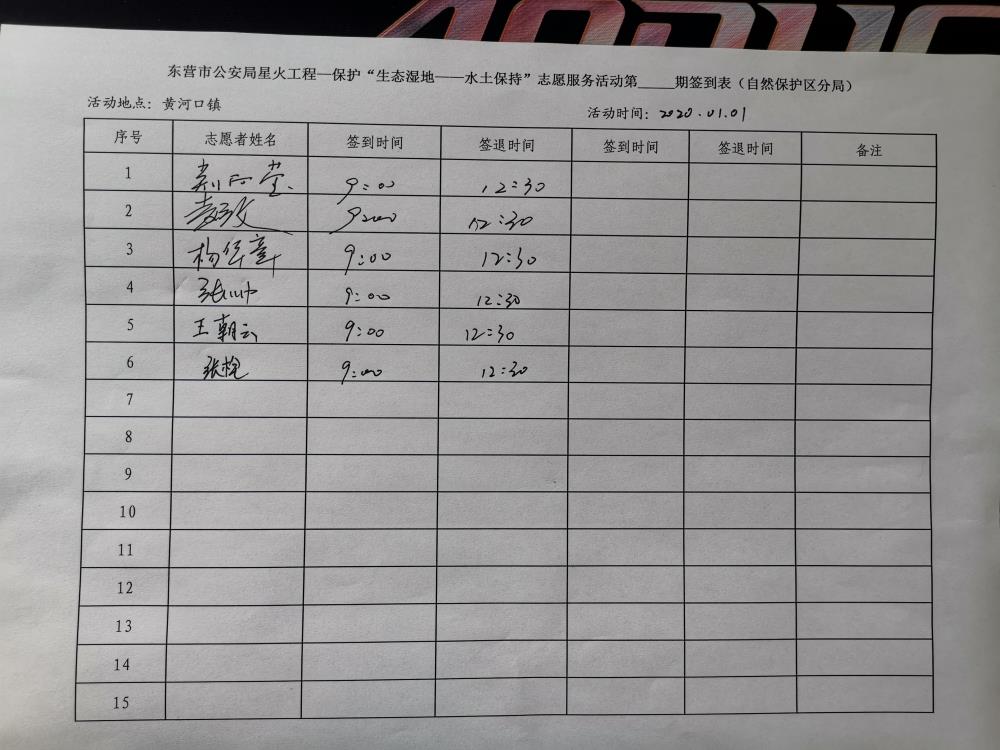 东营市公安局星火工程—保护“生态湿地——水土保持”志愿服务活动第_____期签到表（自然保护区分局）
活动地点：黄河口镇 活动时间：2020.01.01
序号 志愿者姓名 签到时间 签退时间 签到时间 签退时间 备注
1 9:00 12:30
2 9:00 12:30
3 杨华章 9:00 12:30
4 9:00 12:30
5 王朝云 9:00 12:30
6 9:00 12:30
7
8
9
10
11
12
13
14
15